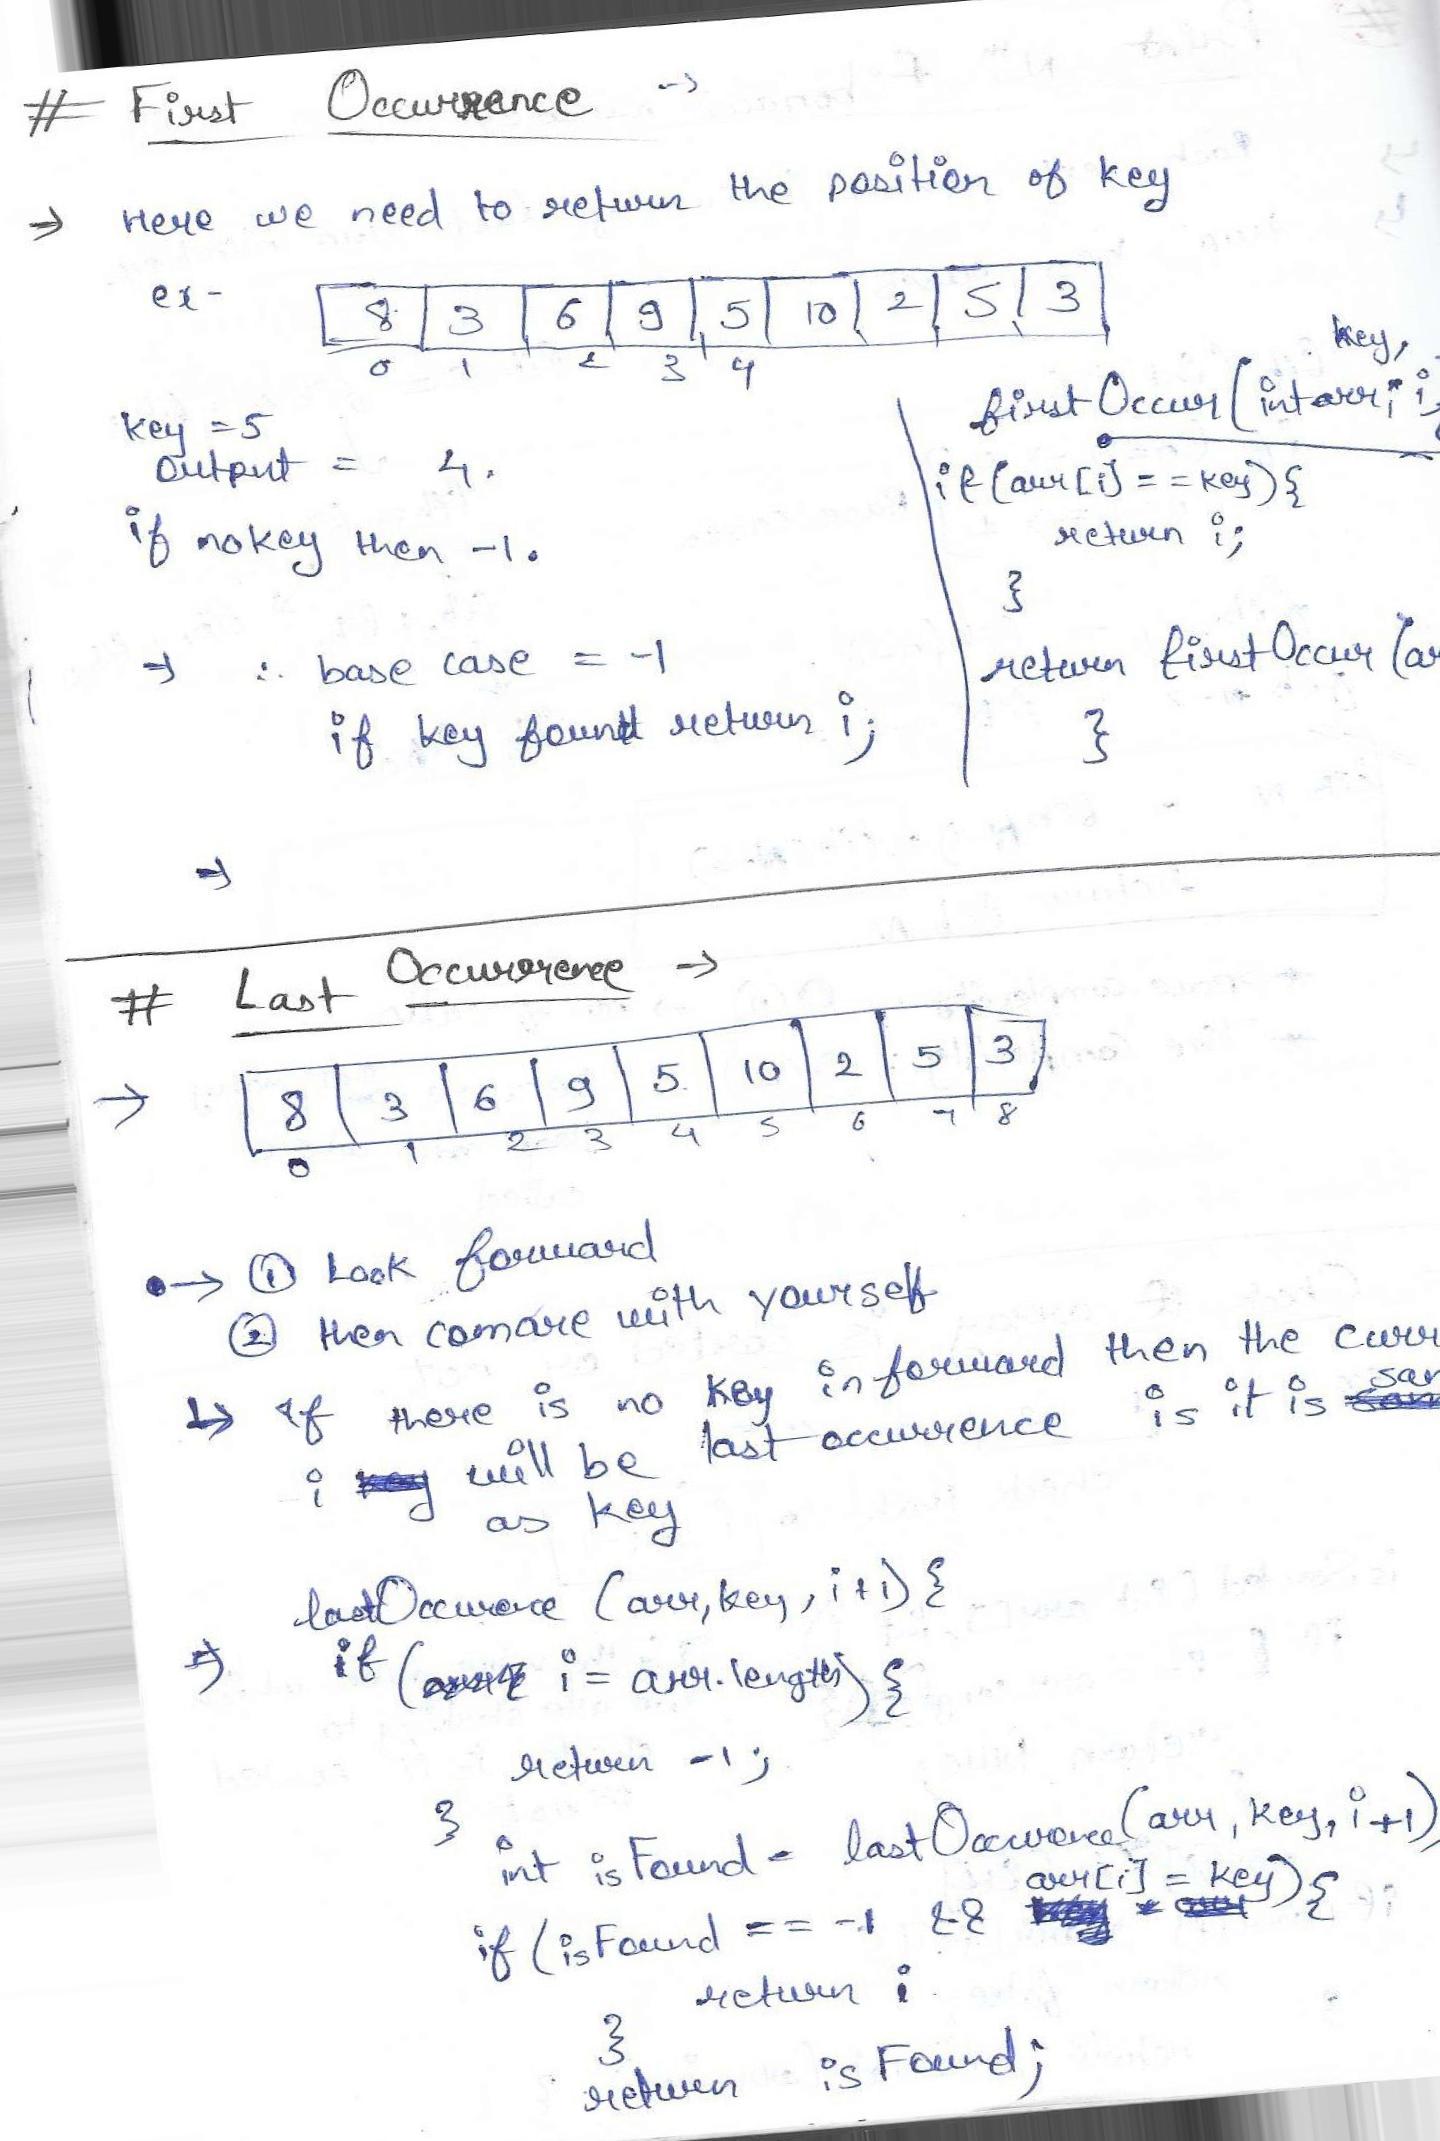 # First Occurrence →
→ Here we need to return the position of key
ex-
8 3 6 9 5 10 2 5 3
0 1 2 3 4
key = 5
output = 4.
if no key then -1.
→ ∴ base case = -1
if key found return i;
→
key,
firstOccur(int arr, i,
if(arr[i] == key){
return i;
}
return firstOccur(ar
}
# Last Occurrence →
→ 8 3 6 9 5 10 2 5 3
0 1 2 3 4 5 6 7 8
•→ ① Look forward
② then comare with yourself
↳ If there is no key in forward then the curr
i will be last occurrence is it is sam
as key
lastOccurence (arr, key, i+1){
⇒ if( i = arr.length){
return -1;
}
int isFound = lastOccurence(arr, key, i+1)
if(isFound == -1 && arr[i] = key){
return i
}
return isFound;